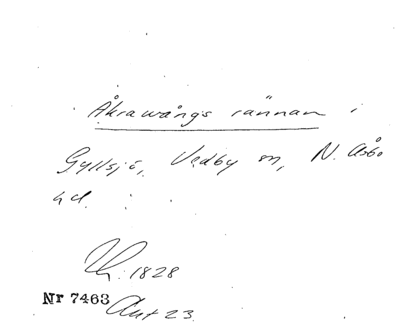 Åkrawångs rännan i
Gyllsjö, Vedby sn, N. Åsbo
hd.
Uh: 1828
Nr 7463 Akt 23